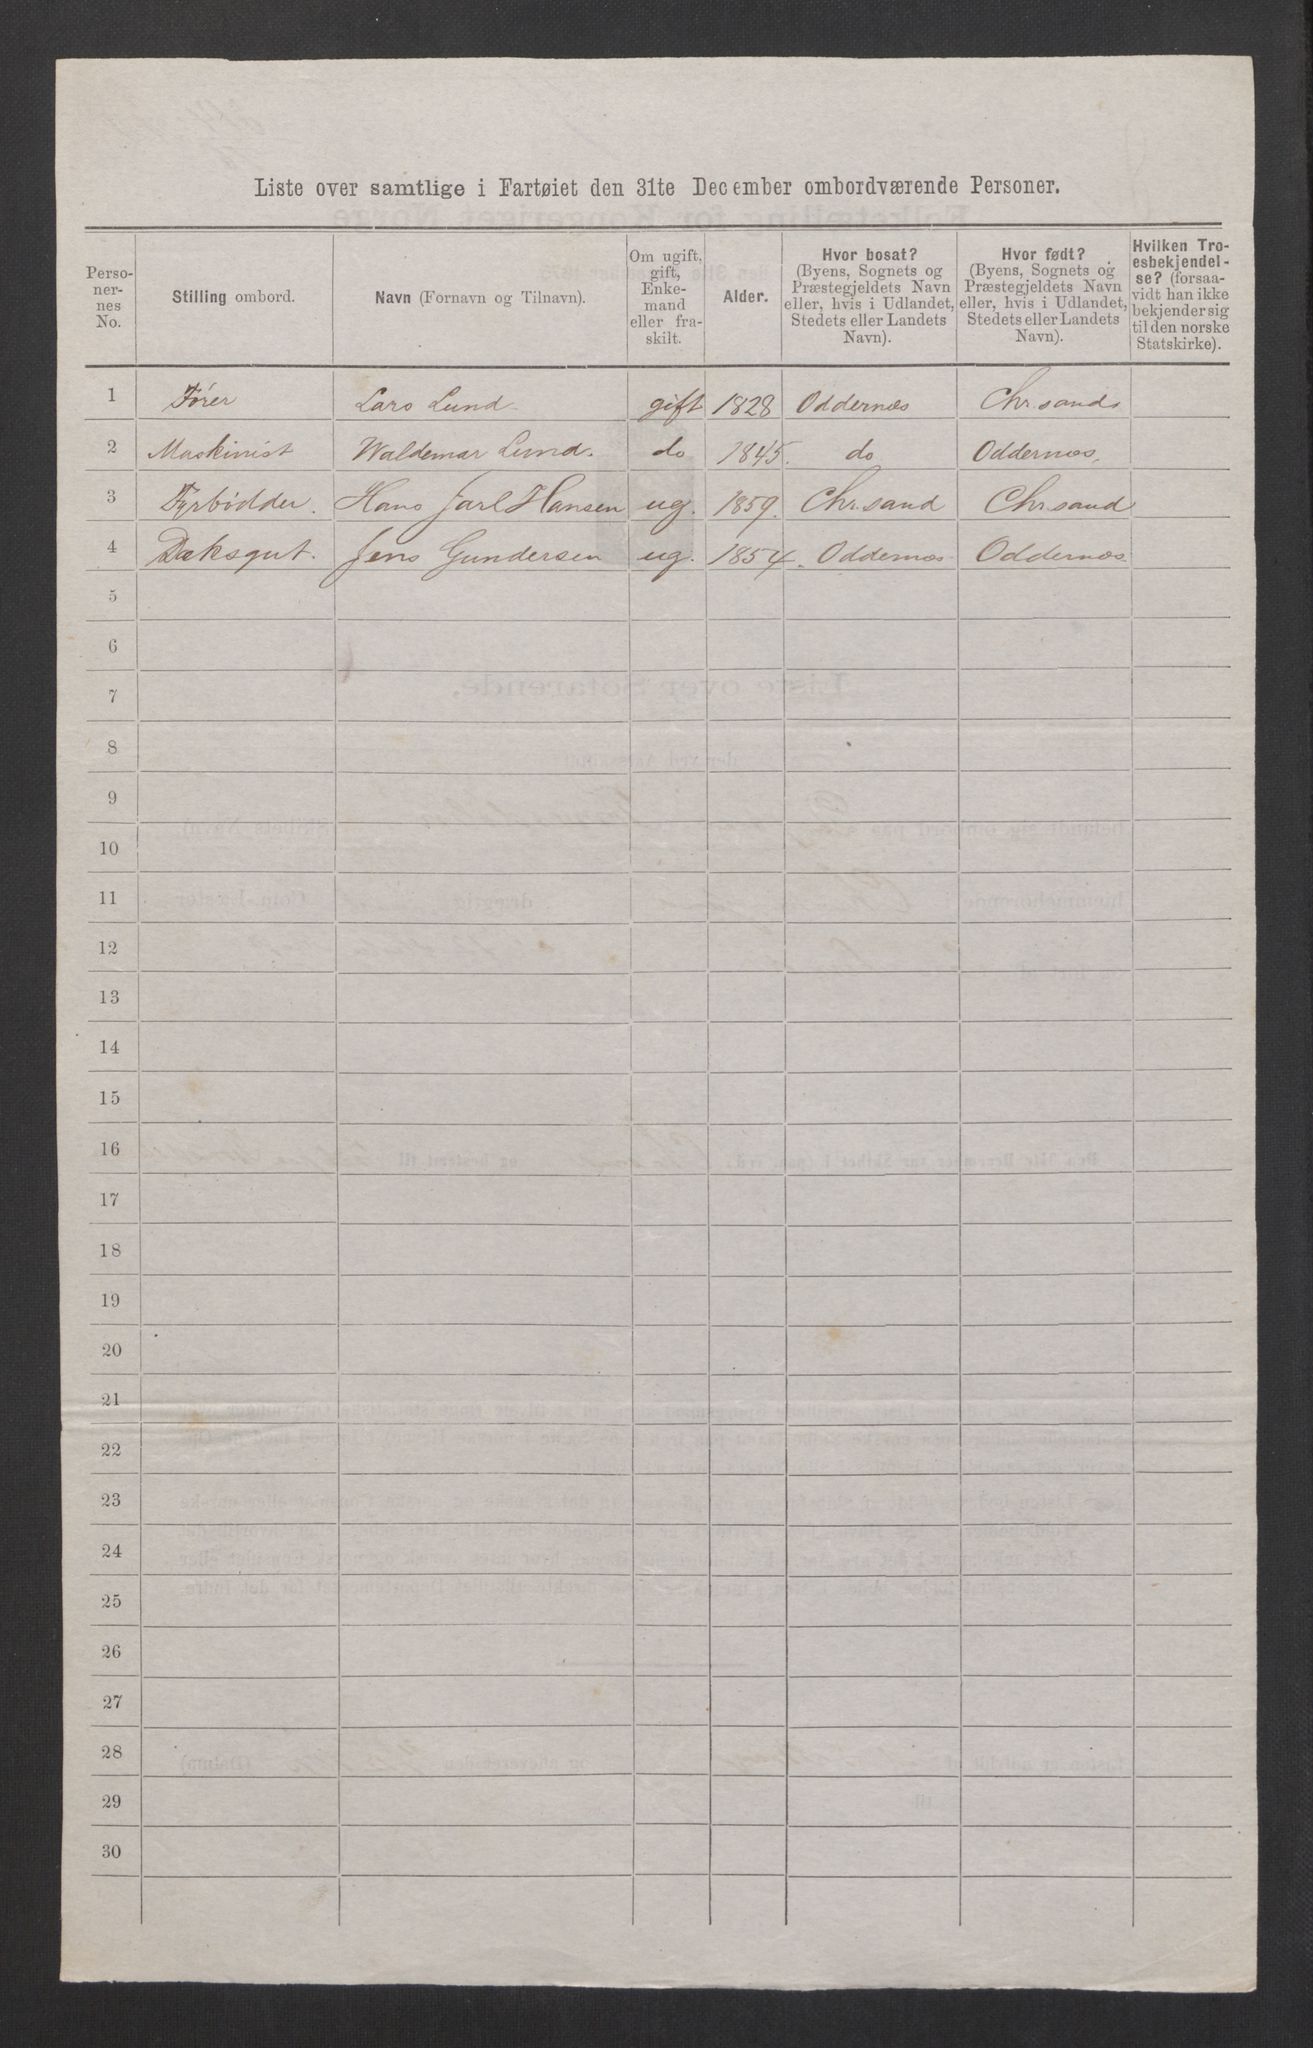 Liste over samtlige i Fartøiet den 31te December ombordværende Personer.
Perso-
ner-
nes
No.
Stilling ombord.
Navn (Fornavn og Tilnavn).
Om ugift,
gift,
Enke-
mand
eller fra-
skilt.
Alder.
Hvor bosat?
(Byens, Sognets og
Præstegjeldets Navn
eller, hvis i Udlandet,
Stedets eller Landets
Navn).
Hvor født?
(Byens, Sognets og
Præstegjeldets Navn
eller, hvis i Udlandet,
Stedets eller Landets
Navn).
Hvilken Tro-
esbekjendel-
se? (forsaa-
vidt han ikke
bekjender sig
til den norske
Statskirke).
1 Fører Lars Lund gift 1828 Oddernæs Chr.sands
2 Maskinist Waldemar Lund. do 1845. do Oddernæs.
3 Fyrbødder. Hans Jarl Hansen ug. 1859. Chr.sand Chr.sand
4 Dæksgut. Jens Gundersen ug. 1854. Oddernæs Oddernæs
5
6
7
8
9
10
11
12
13
14
15
16
17
18
19
20
21
22
23
24
25
26
27
28
29
30